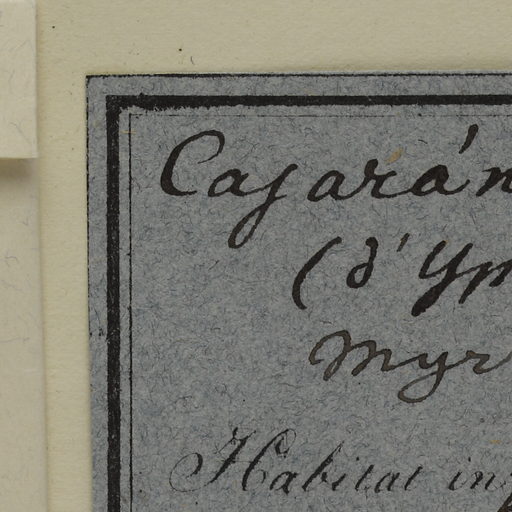 Cajarán
(d'Ym
Myr
Habitat in